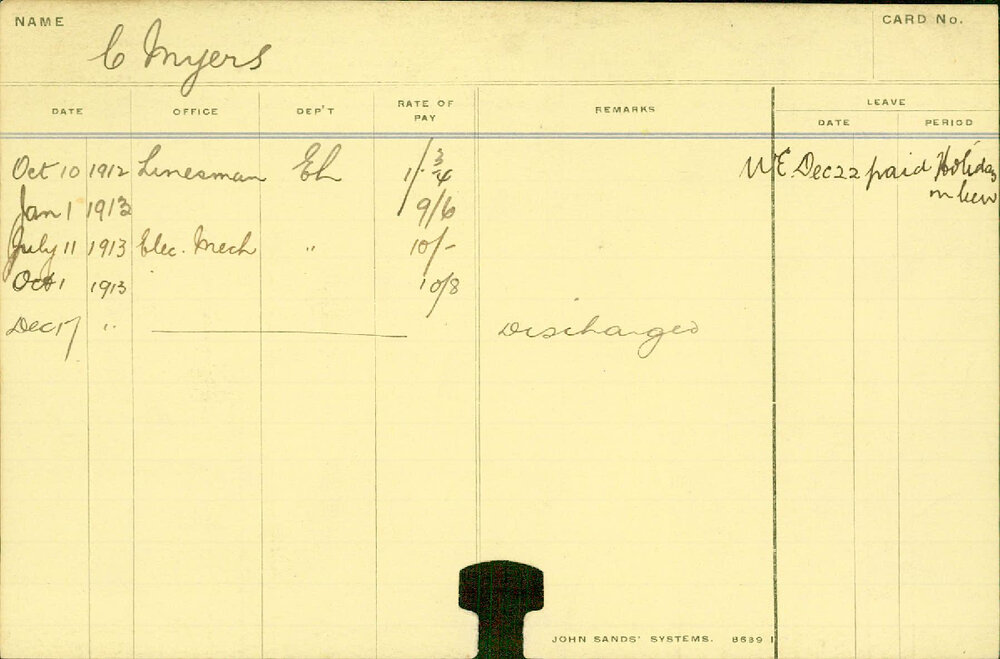 NAME
C Myers
CARD No.
DATE OFFICE DEP'T RATE OF PAY REMARKS LEAVE
DATE PERIOD
Oct 10 1912 Linesman El 1/ 3/4 W/E Dec 22 paid Holiday
Jan 1 1913 9/6 in lieu
July 11 1913 Elec. Mech " 10/-
Oct 1 1913 10/8
Dec 17 " Discharged
JOHN SANDS' SYSTEMS. 8639